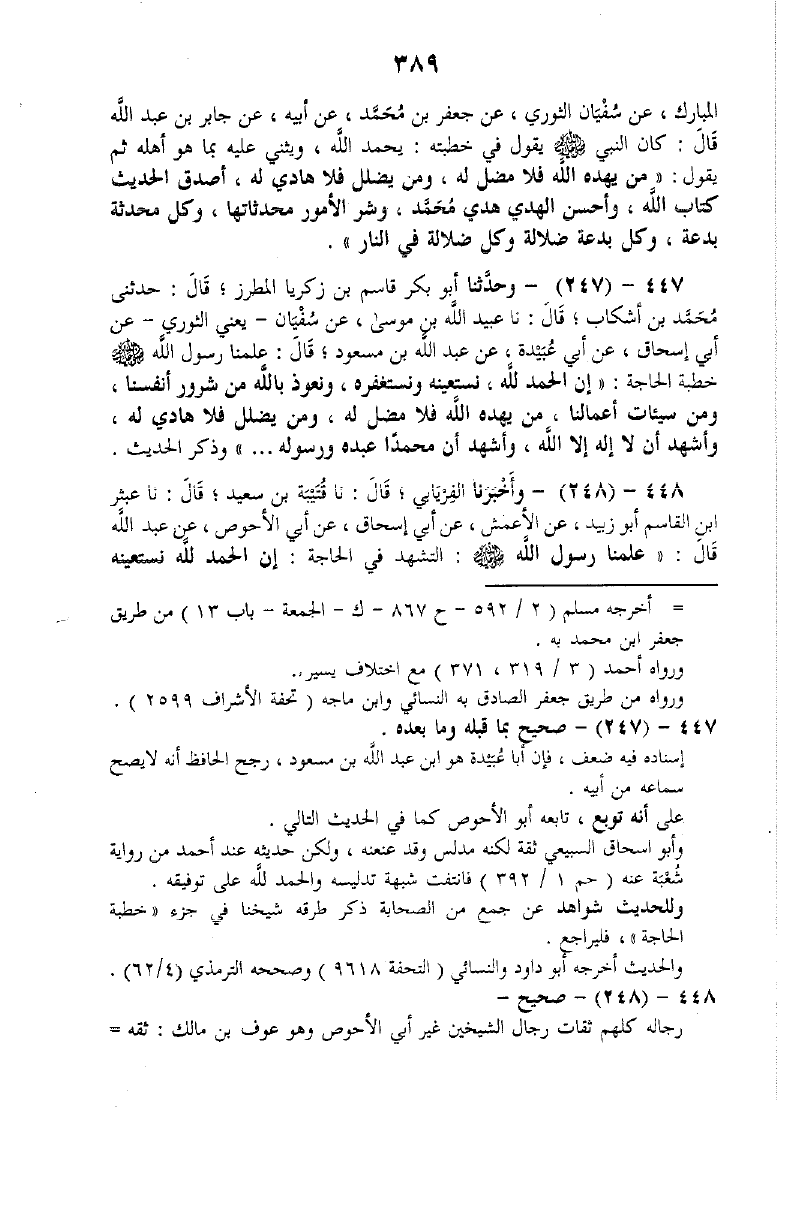 ٣٨٩
المبارك ، عن سُفْيَان الثوري ، عن جعفر بن مُحَمَّد ، عن أبيه ، عن جابر بن عبد اللَّه
قَالَ : كان النبي ﷺ يقول في خطبته : يحمد اللَّه ، ويثني عليه بما هو أهله ثم
يقول : « من يهده اللَّه فلا مضل له ، ومن يضلل فلا هادي له ، أصدق الحديث
كتاب اللَّه ، وأحسن الهدي هدي مُحَمَّد ، وشر الأمور محدثاتها ، وكل محدثة
بدعة ، وكل بدعة ضلالة وكل ضلالة في النار » .
٤٤٧ - (٢٤٧) - وحدَّثنا أبو بكر قاسم بن زكريا المطرز ؛ قَالَ : حدثنى
مُحَمَّد بن أشكاب ؛ قَالَ : نا عبيد اللَّه بن موسىٰ ، عن سُفْيَان - يعني الثوري - عن
أبي إسحاق ، عن أبي عُبَيْدة ، عن عبد اللَّه بن مسعود ؛ قَالَ : علمنا رسول اللَّه ﷺ
خطبة الحاجة : « إن الحمد للَّه ، نستعينه ونستغفره ، ونعوذ باللَّه من شرور أنفسنا ،
ومن سيئات أعمالنا ، من يهده اللَّه فلا مضل له ، ومن يضلل فلا هادي له ،
وأشهد أن لا إله إلا اللَّه ، وأشهد أن محمدًا عبده ورسوله ... » وذكر الحديث .
٤٤٨ - (٢٤٨) - وأَخْبَرَنا الفِرْيَابي ؛ قَالَ : نا قُتَيْبَة بن سعيد ؛ قَالَ : نا عبثر
ابن القاسم أبو زبيد ، عن الأعمش ، عن أبي إسحاق ، عن أبي الأحوص ، عن عبد اللَّه
قَالَ : « علمنا رسول اللَّه ﷺ : التشهد في الحاجة : إن الحمد للَّه نستعينه
= أخرجه مسلم ( ٢ / ٥٩٢ - ح ٨٦٧ - ك - الجمعة - باب ١٣ ) من طريق
جعفر ابن محمد به .
ورواه أحمد ( ٣ / ٣١٩ ، ٣٧١ ) مع اختلاف يسير .
ورواه من طريق جعفر الصادق به النسائي وابن ماجه ( تحفة الأشراف ٢٥٩٩ ) .
٤٤٧ - (٢٤٧) - صحيح بما قبله وما بعده .
إسناده فيه ضعف ، فإن أبا عُبَيْدة هو ابن عبد اللَّه بن مسعود ، رجح الحافظ أنه لايصح
سماعه من أبيه .
على أنه توبع ، تابعه أبو الأحوص كما في الحديث التالي .
وأبو اسحاق السبيعي ثقة لكنه مدلس وقد عنعنه ، ولكن حديثه عند أحمد من رواية
شُعْبَة عنه ( حم ١ / ٣٩٢ ) فانتفت شبهة تدليسه والحمد للَّه على توفيقه .
وللحديث شواهد عن جمع من الصحابة ذكر طرقه شيخنا في جزء « خطبة
الحاجة » ، فليراجع .
والحديث أخرجه أبو داود والنسائي ( التحفة ٩٦١٨ ) وصححه الترمذي (٦٢/٤) .
٤٤٨ - (٢٤٨) - صحيح -
رجاله كلهم ثقات رجال الشيخين غير أبي الأحوص وهو عوف بن مالك : ثقه =